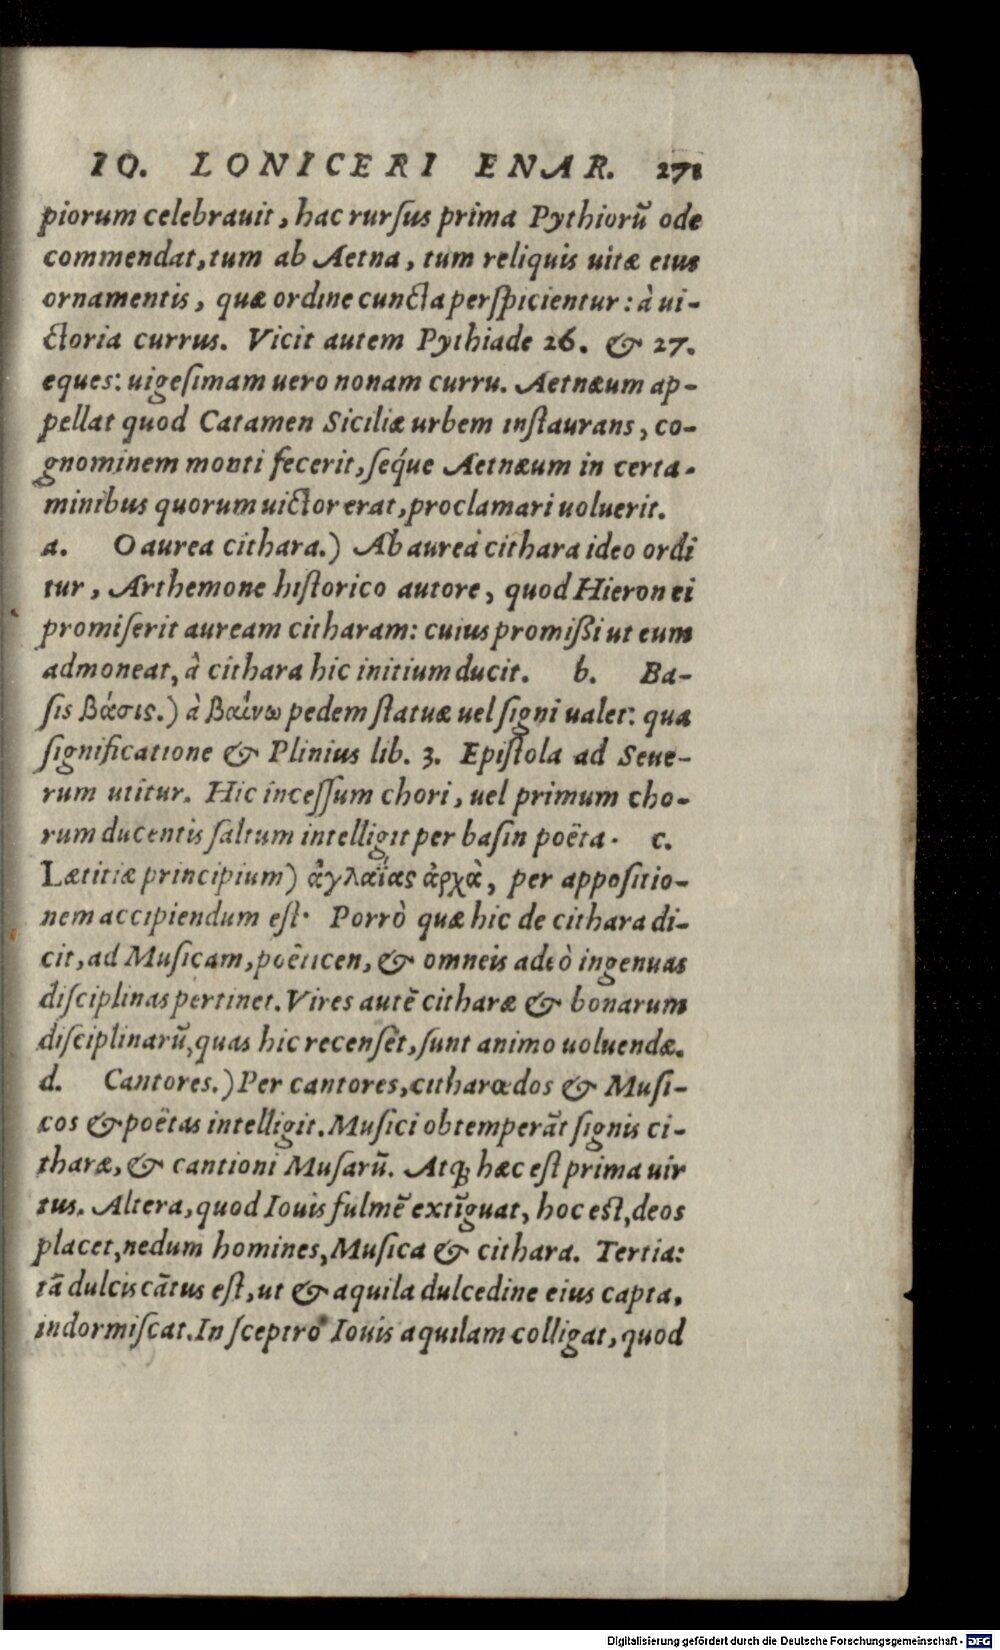 IO. LONICERI ENAR. 271
piorum celebrauit, hac rursus prima Pythiorũ ode
commendat, tum ab Aetna, tum reliquis uitæ eius
ornamentis, quæ ordine cuncta perspicientur: à ui-
ctoria currus. Vicit autem Pythiade 26. & 27.
eques: uigesimam uero nonam curru. Aetnæum ap-
pellat quod Catamen Siciliæ urbem instaurans, co-
gnominem monti fecerit, seq́ue Aetnæum in certa-
minibus quorum uictor erat, proclamari uoluerit.
a. O aurea cithara.) Ab aurea cithara ideo ordi
tur, Arthemone historico autore, quod Hieron ei
promiserit auream citharam: cuius promißi ut eum
admoneat, à cithara hic initium ducit. b. Ba-
sis βάσις.) à βαίνω pedem statuæ uel signi ualet: qua
significatione & Plinius lib. 3. Epistola ad Seue-
rum utitur. Hic incessum chori, uel primum cho-
rum ducentis saltum intelligit per basin poëta. c.
Lætitiæ principium) ἀγλαΐας ἀρχὰ, per appositio-
nem accipiendum est. Porrò quæ hic de cithara di-
cit, ad Musicam, poëticen, & omneis adeò ingenuas
disciplinas pertinet. Vires autẽ citharæ & bonarum
disciplinarũ, quas hic recenset, sunt animo uoluendæ.
d. Cantores.) Per cantores, citharœdos & Musi-
cos & poëtas intelligit. Musici obtemperãt signis ci-
tharæ, & cantioni Musarũ. Atq; hæc est prima uir
tus. Altera, quod Iouis fulmẽ extĩguat, hoc est, deos
placet, nedum homines, Musica & cithara. Tertia:
tã dulcis cãtus est, ut & aquila dulcedine eius capta,
indormiscat. In sceptro Iouis aquilam colligat, quod
Digitalisierung gefördert durch die Deutsche Forschungsgemeinschaft - DFG